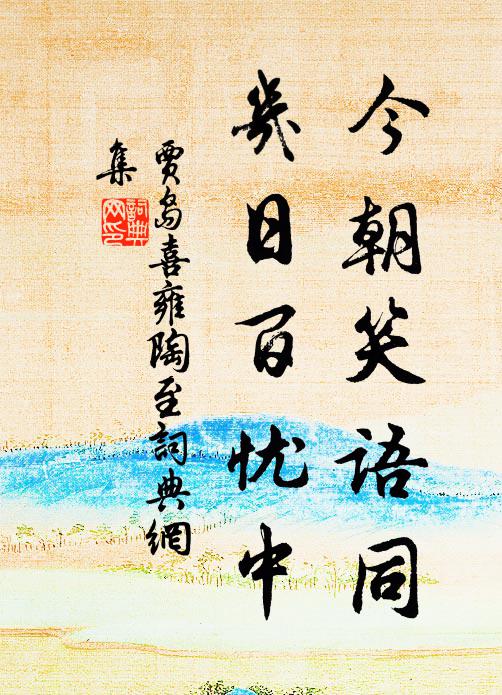 今朝笑语同
几日百忧中
贾岛喜雍陶至詞典網
集
詞典
网印